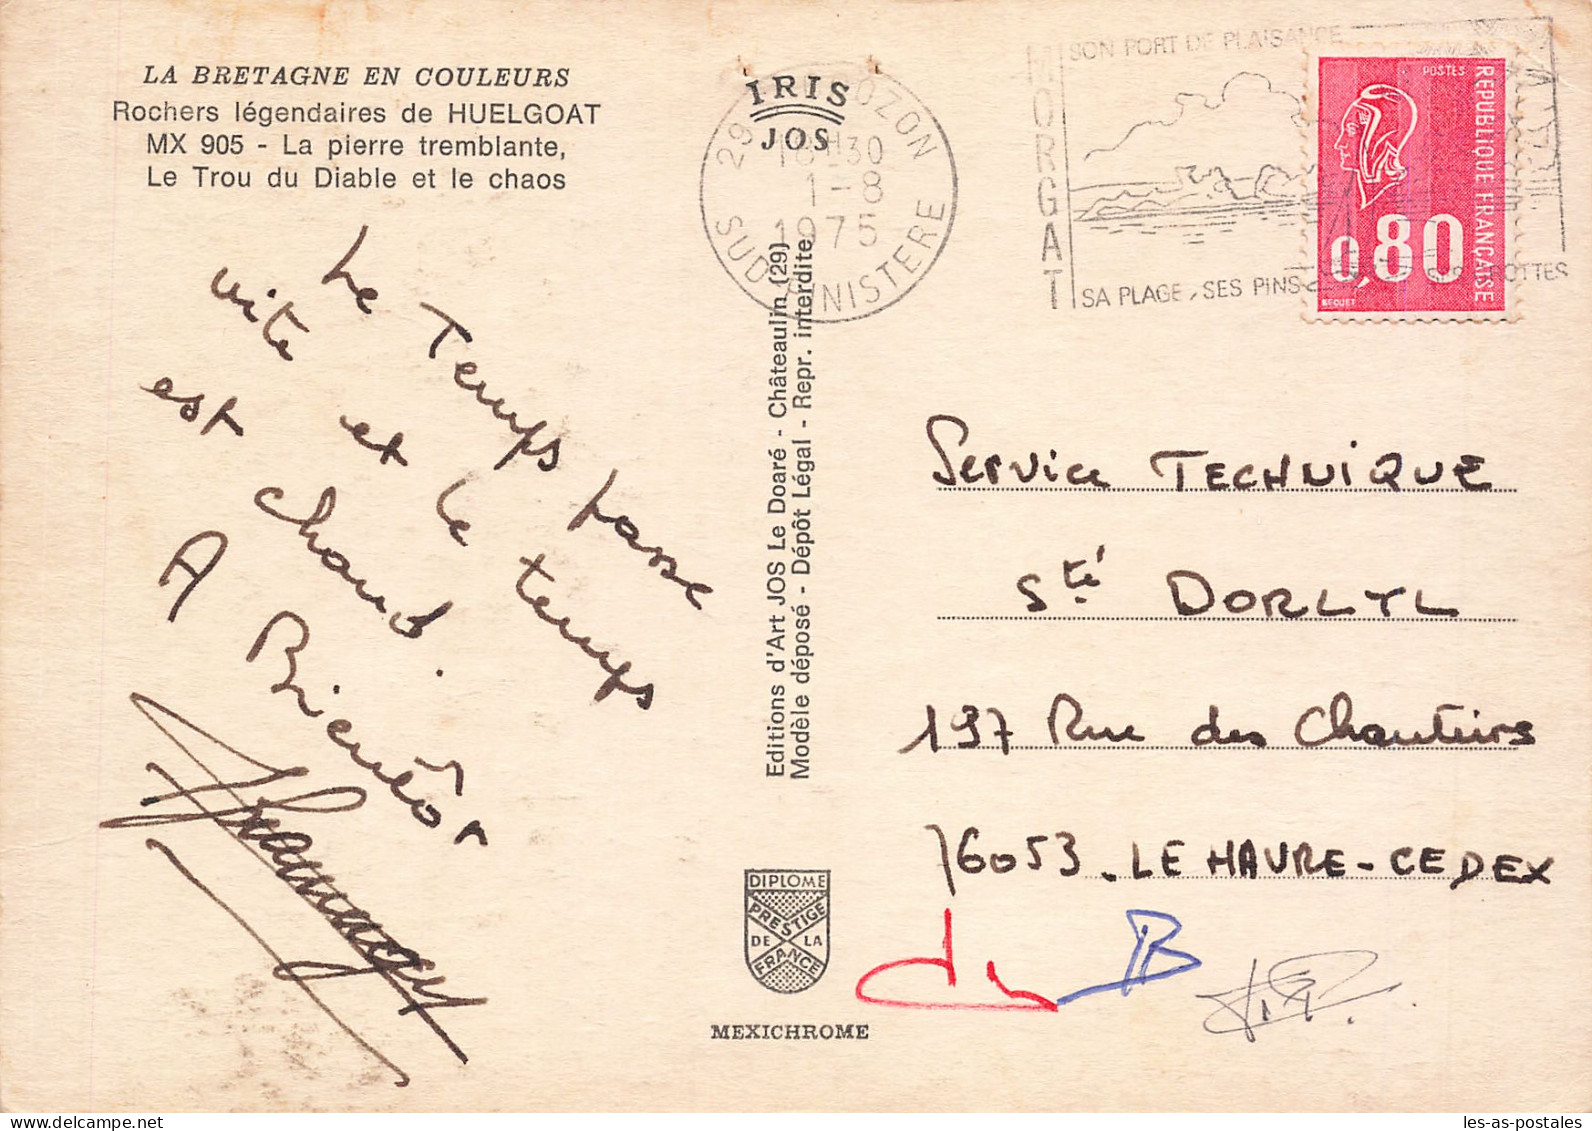 LA BRETAGNE EN COULEURS
Rochers légendaires de HUELGOAT
MX 905 - La pierre tremblante,
Le Trou du Diable et le chaos
Le Temps passe
vite et le temps
est chaud.
A Bientôt
IRIS
JOS
29 OZON
18H30
1-8
1975
SUD FINISTERE
MORGAT
SON PORT DE PLAISANCE
SA PLAGE, SES PINS
POSTES
REPUBLIQUE FRANÇAISE
0,80
BEQUET
Editions d'Art JOS Le Doaré - Châteaulin (29)
Modèle déposé - Dépôt Légal - Repr. interdite
Service TECHNIQUE
Sté DORLYL
197 Rue des Chantiers
76053 - LE HAVRE-CEDEX
DIPLOME
PRESTIGE
DE LA
FRANCE
MEXICHROME
les-as-postales